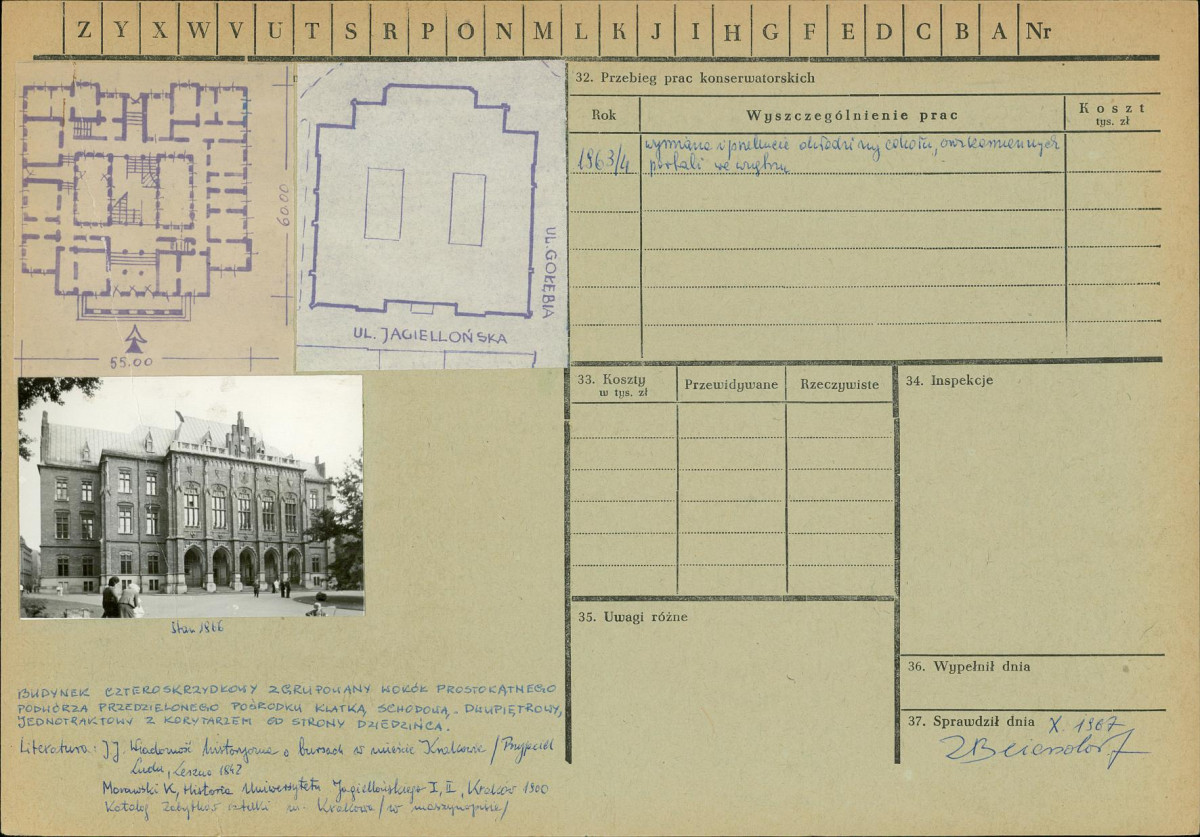 Z Y X W V U T S R P O N M L K J I H G F E D C B A Nr
60.00
55.00
UL. GOŁĘBIA
UL. JAGIELLOŃSKA
32. Przebieg prac konserwatorskich
Rok
Wyszczególnienie prac
Koszt
tys. zł
1963/4
wymiana i przekucie okładziny cokołu, oraz kamiennych
portali we wnętrzu
33. Koszty
w tys. zł
Przewidywane
Rzeczywiste
34. Inspekcje
35. Uwagi różne
36. Wypełnił dnia
37. Sprawdził dnia X. 1967
Stan 1966
BUDYNEK CZTEROSKRZYDŁOWY ZGRUPOWANY WOKÓŁ PROSTOKĄTNEGO
PODWÓRZA PRZEDZIELONEGO POŚRODKU KLATKĄ SCHODOWĄ. DWUPIĘTROWY,
JEDNOTRAKTOWY Z KORYTARZEM OD STRONY DZIEDZIŃCA.
Literatura: J.J. Wiadomość historyczna o bursach w mieście Krakowie / Przyjaciel
Ludu, Leszno 1842
Morawski K, Historia Uniwersytetu Jagiellońskiego I, II, Kraków 1900
Katalog Zabytków sztuki m. Krakowa /w maszynopisie/